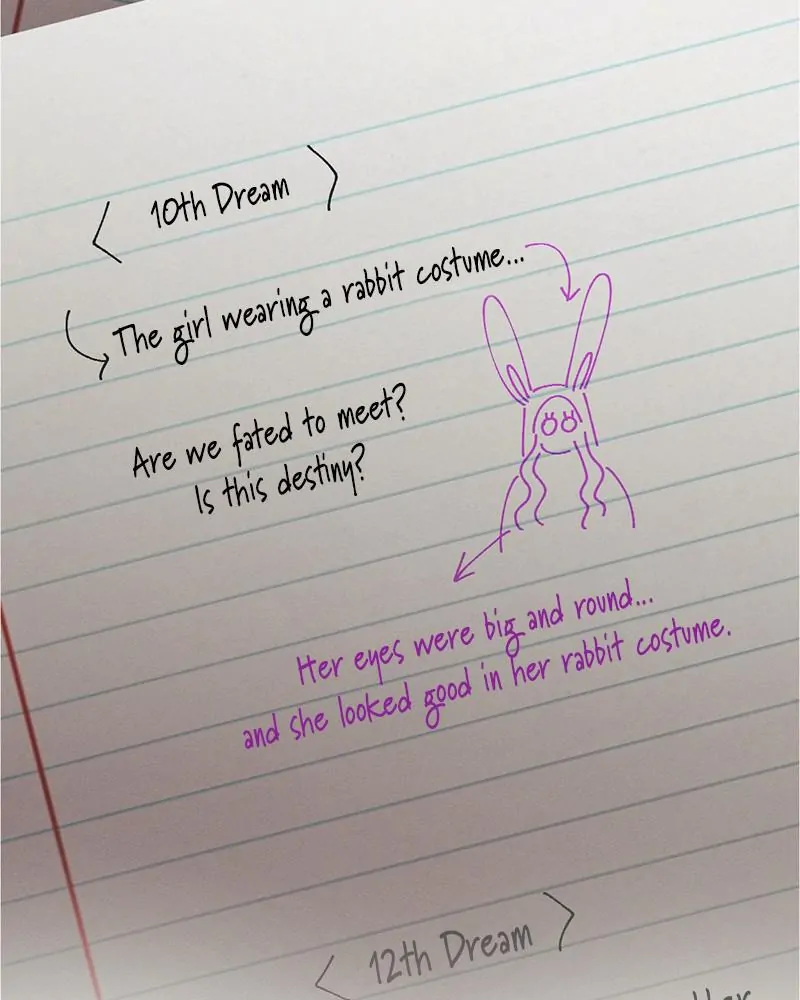 < 10th Dream >
The girl wearing a rabbit costume...
Are we fated to meet?
Is this destiny?
Her eyes were big and round...
and she looked good in her rabbit costume.
< 12th Dream >